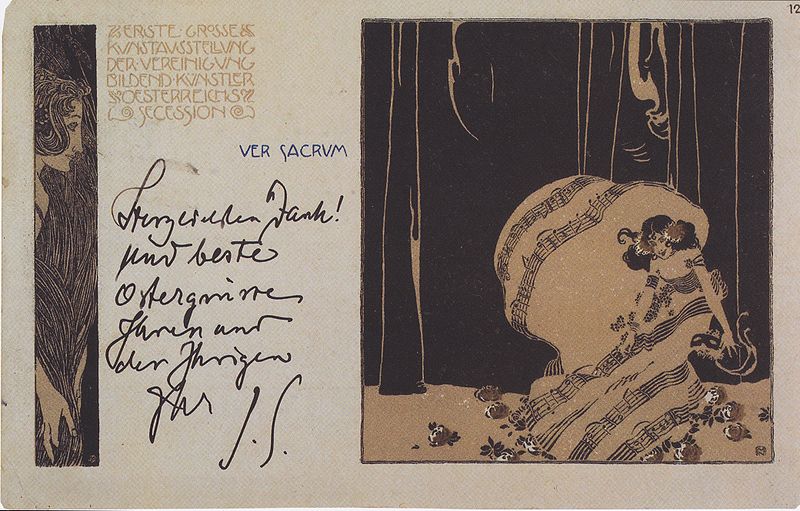 ERSTE GROSSE
KUNSTAUSSTELLUNG
DER VEREINIGUNG
BILDEND KÜNSTLER
OESTERREICHS
SECESSION
VER SACRVM
Herzlichen Dank!
und beste
Ostergrüsse
Ihnen und
den Ihrigen
Ihr
J. S.
12